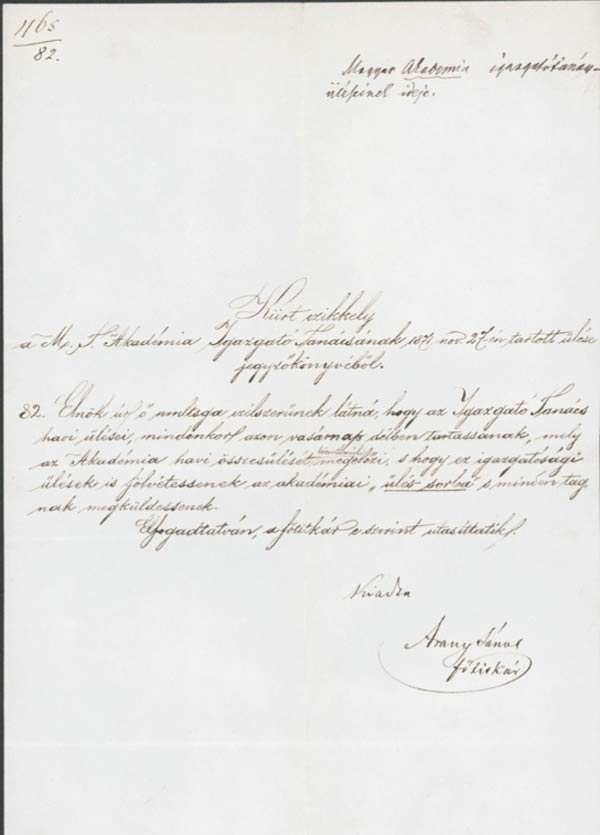 465
82.
Magyar Akademia igazgatótanács-
üléseinek ideje.
Kiirt czikkely
a M. T. Akadémia Igazgató Tanácsának, 1871 nov. 27-én tartott ülése
jegyzőkönyvéből.
82. Elnök úr ő czélszerünek látná, hogy az Igazgató Tanács
havi ülései, mindenkor azon vasárnap délben tartassanak, mely
az Akadémia havi összesülését közvetlenül megelőzi, s hogy ez igazgatósági
ülések is fölvétessenek az akadémiai „ülés-sorba" s minden tag-
nak megküldessenek.
Elfogadtatván, a főtitkár e szerint utasíttatik.
Kiadta
Arany János
főtitkár